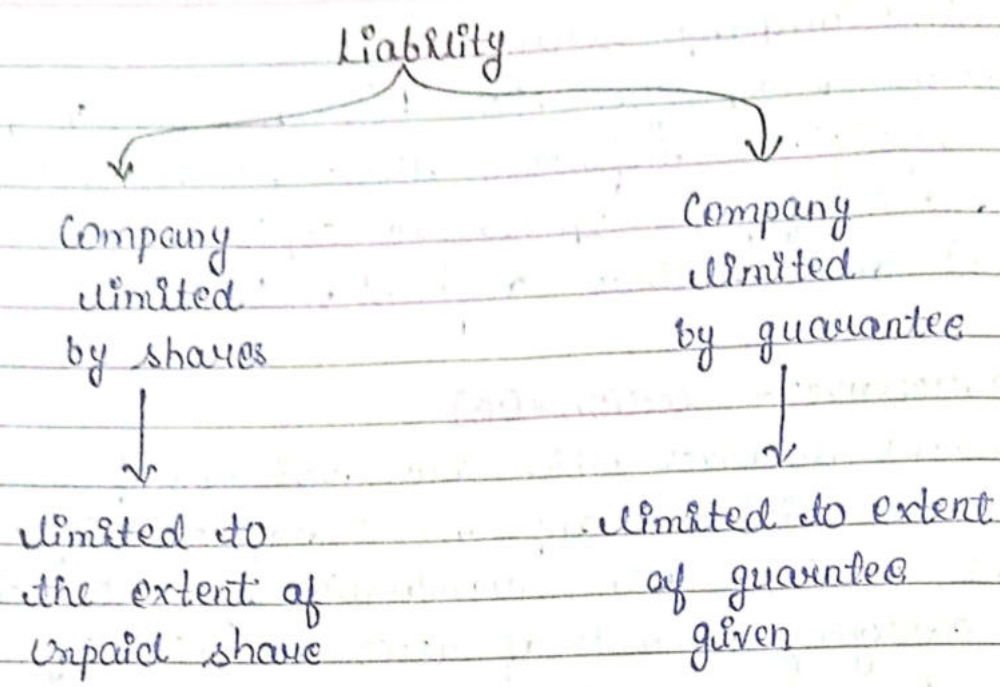 Liability
Company
limited
by shares
limited to
the extent of
unpaid share
Company
limited
by guarantee
limited to extent
of guarntee
given